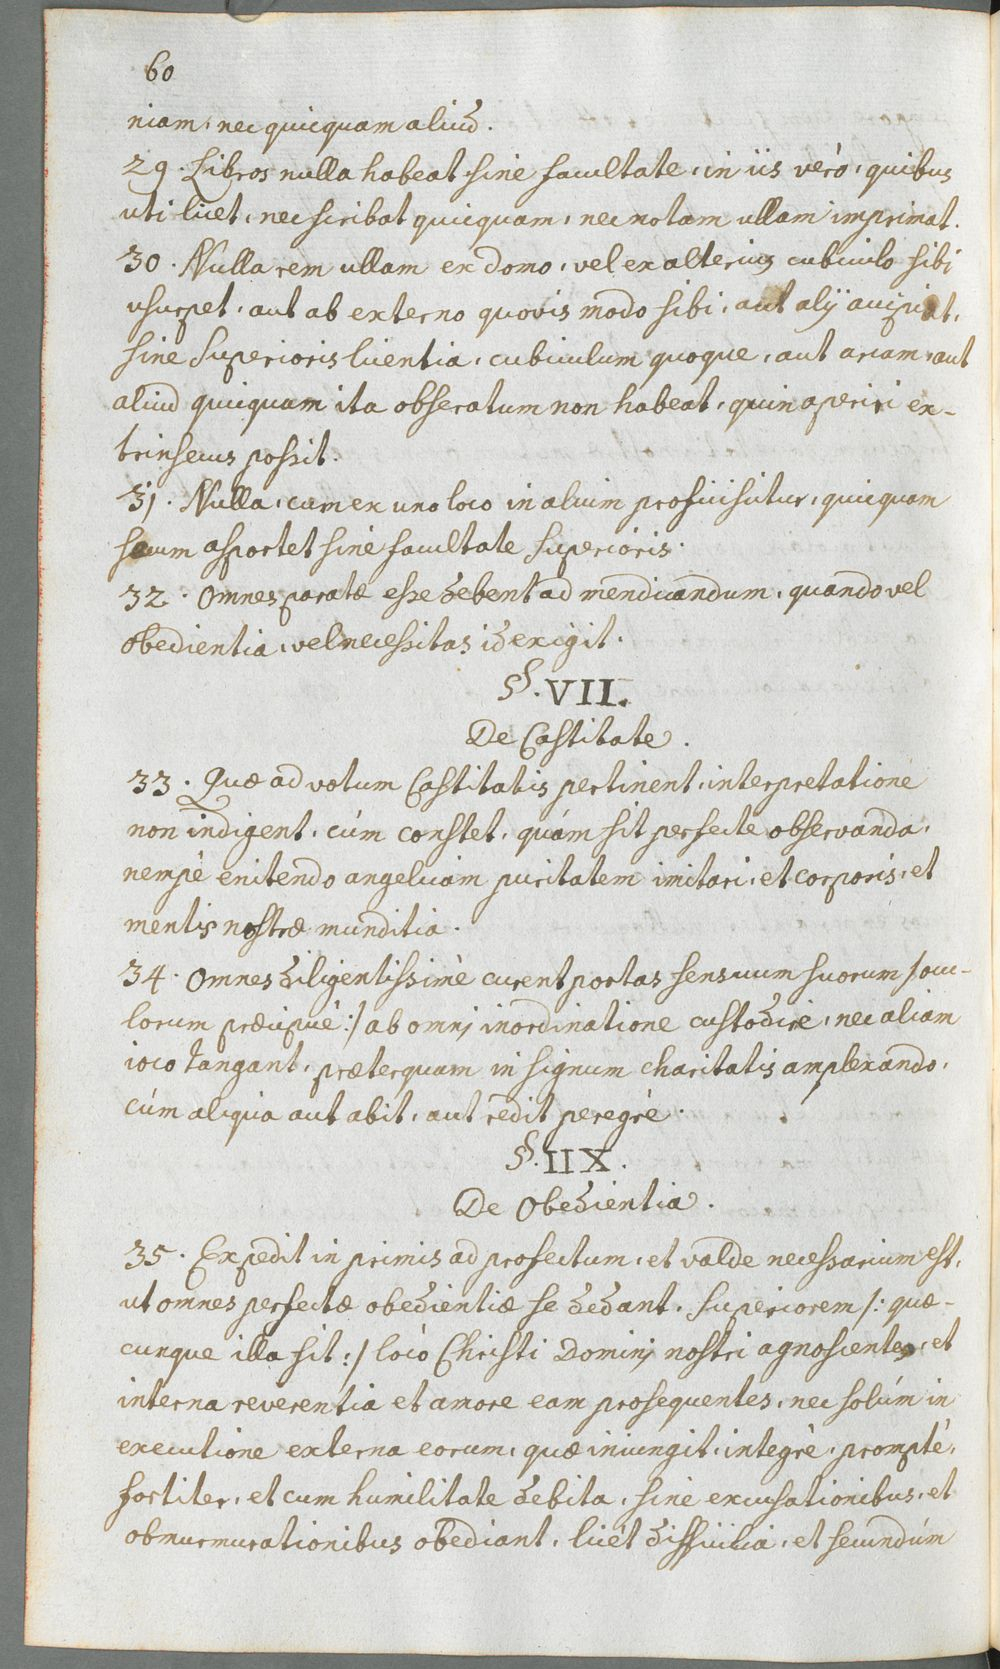 60
niam, nec quicquam aliud.
29. Libros nulla habeat sine facultate, in iis verò, quibus
uti licet, nec scribat quicquam, nec notam ullam imprimat.
30. Nulla rem ullam ex domo, vel ex alterius cubiculo sibi
usurpet, aut ab externo quovis modo sibi, aut alÿ accipiat,
sine Superioris licentia, cubiculum quoque, aut arcam, aut
aliud quicquam ita obseratum non habeat, quin aperiri ex-
trinsecus possit.
31. Nulla, cum ex uno loco in alium proficiscitur, quicquam
secum asportet sine facultate Superioris.
32. Omnes paratæ esse debent ad mendicandum, quando vel
obedientia, vel necessitas id exigit.
§. VII.
De Castitate.
33. Quæ ad votum Castitatis pertinent, interpretatione
non indigent, cúm constet, quám sit perfecte observanda,
nempè enitendo angelicam puritatem imitari, et corporis, et
mentis nostræ munditia.
34. Omnes diligentissimè curent portas sensuum suorum /ocu-
lorum præcipuè:/ ab omnj inordinatione custodire, nec aliam
ioco tangant, præterquam in signum charitatis amplexando,
cúm aliqua aut abit, aut redit peregrè.
§. IIX.
De Obedientia.
35. Expedit in primis ad profectum, et valde necessarium est,
ut omnes perfectæ obedientiæ se dedant, Superiorem /: quæ-
cunque illa sit:/ locò Christi Dominj nostri agnoscentes, et
interna reverentia et amore eam prosequentes, nec solúm in
executione externa eorum, quæ iniungit, integrè, promptè,
fortiter, et cum humilitate debita, sine excusationibus, et
obmurmurationibus obediant, licèt difficilia, et secundúm